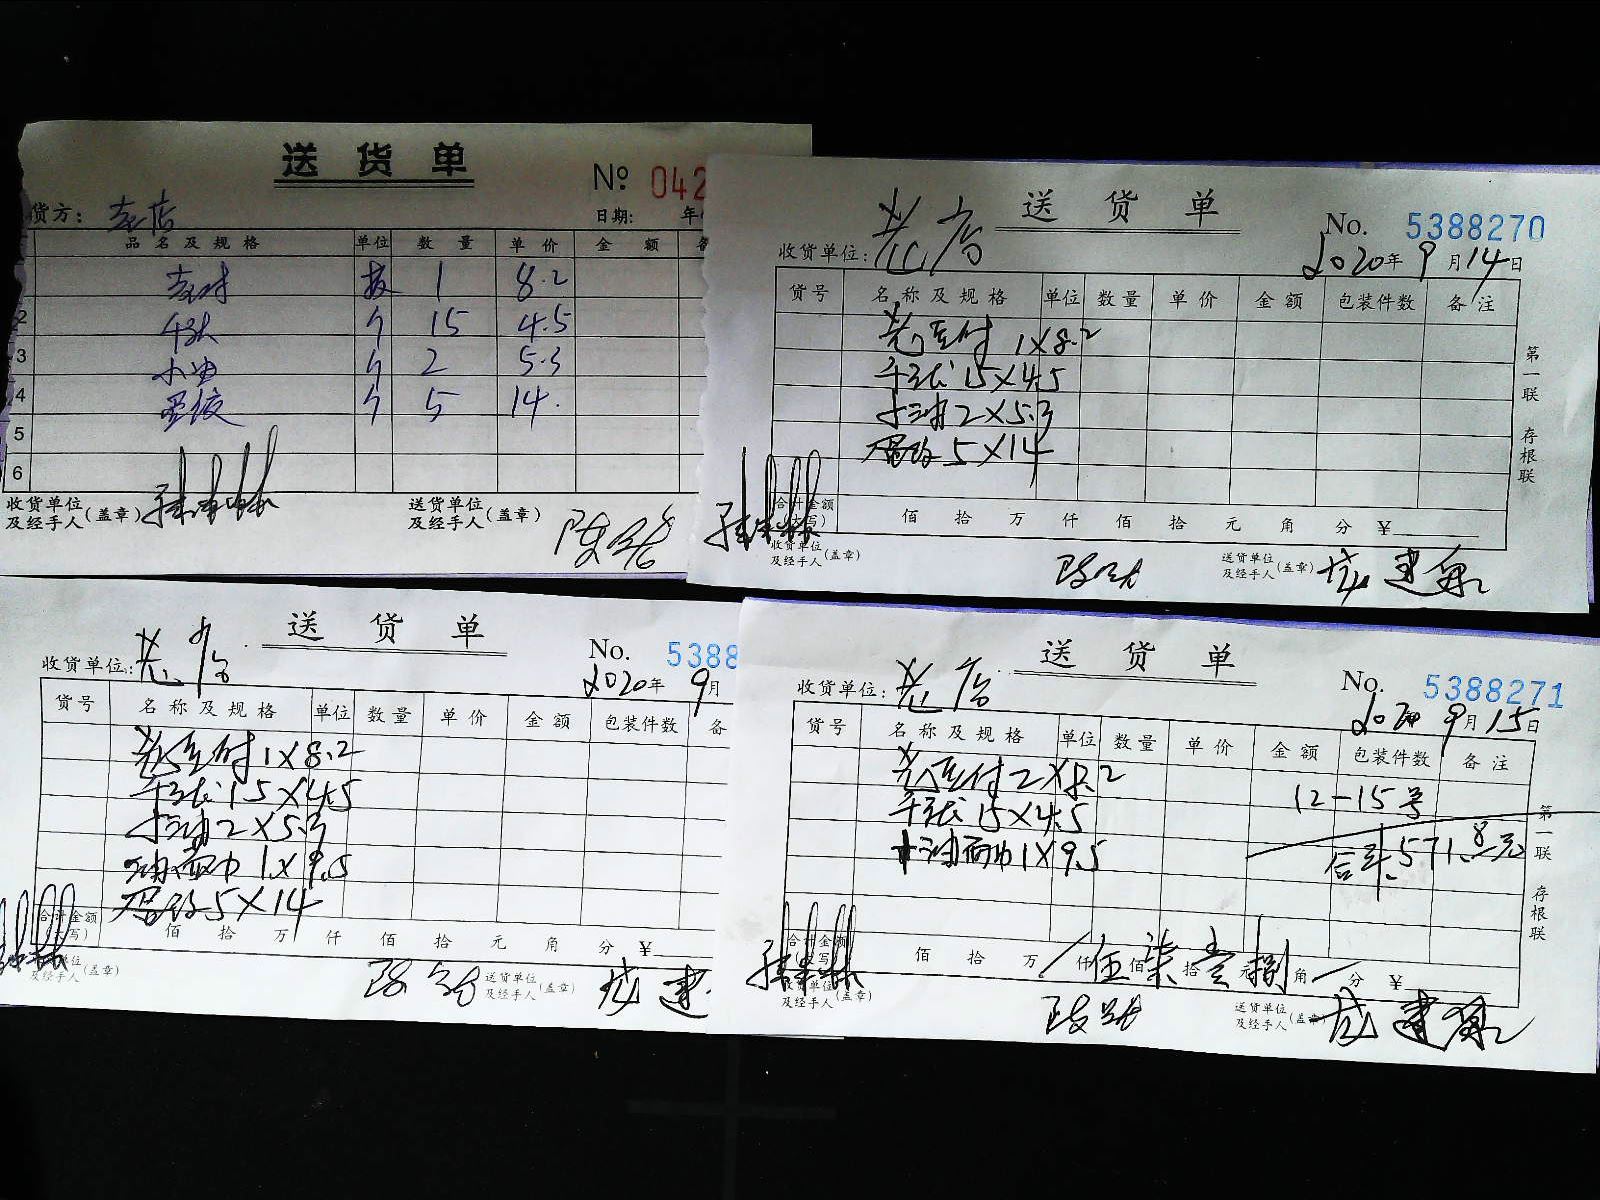 送货单
No 042
货方: 老店
日期: 年
品名及规格 单位 数量 单价 金额
板 1 8.2
千张 〃 15 4.5
2 小油 〃 2 5.3
3 〃 5 14.
4
5
6
收货单位及经手人(盖章)
送货单位及经手人(盖章)
送货单
No. 5388270
收货单位: 老店
2020年9月14日
货号 名称及规格 单位 数量 单价 金额 包装件数 备注
老豆付 1×8.2
千张 15×4.5
小油 2×5.3
5×14
合计金额(大写) 佰 拾 万 仟 佰 拾 元 角 分 ¥
收货单位及经手人(盖章)
送货单位及经手人(盖章)
第一联 存根联
送货单
No. 5388
收货单位: 老店
2020年9月
货号 名称及规格 单位 数量 单价 金额 包装件数 备
老豆付 1×8.2
千张 15×4.5
小油 2×5.3
油面巾 1×9.5
5×14
合计金额(大写) 佰 拾 万 仟 佰 拾 元 角 分 ¥
单位及经手人(盖章)
送货单位及经手人(盖章)
送货单
No. 5388271
收货单位: 老店
2020年9月15日
货号 名称及规格 单位 数量 单价 金额 包装件数 备注
老豆付 2×8.2
千张 15×4.5
小油面巾 1×9.5
12-15号
合计:571.8元
合计金额(大写) 佰 拾 万 仟 伍佰 柒拾 壹元 捌角 分 ¥
收货单位及经手人(盖章)
送货单位及经手人(盖章)
第一联 存根联